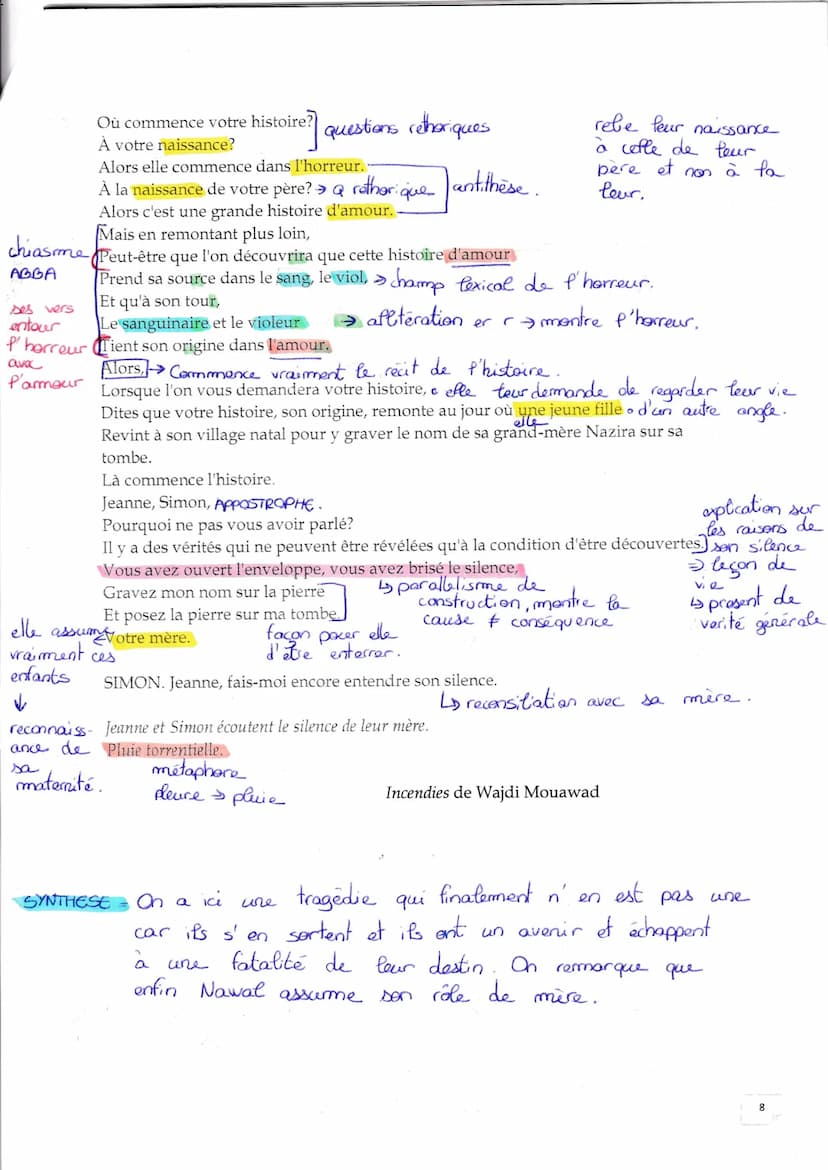 Où commence votre histoire?
questions rethoriques
À votre naissance?
Alors elle commence dans l'horreur.
À la naissance de votre père? → Q réthorique
antithèse.
Alors c'est une grande histoire d'amour.
relie leur naissance
à celle de leur
père et non à la
leur.
Mais en remontant plus loin,
Peut-être que l'on découvrira que cette histoire d'amour
Prend sa source dans le sang, le viol, → champ lexical de l'horreur.
Et qu'à son tour,
Le sanguinaire et le violeur → allitération er r → montre l'horreur.
Tient son origine dans l'amour.
chiasme
ABBA
ses vers
entour
l'horreur
avec
l'amour
Alors, → Commence vraiment le récit de l'histoire.
Lorsque l'on vous demandera votre histoire, elle leur demande de regarder leur vie
Dites que votre histoire, son origine, remonte au jour où une jeune fille d'un autre angle.
elle
Revint à son village natal pour y graver le nom de sa grand-mère Nazira sur sa
tombe.
Là commence l'histoire.
Jeanne, Simon, APPOSTROPHE.
Pourquoi ne pas vous avoir parlé?
Il y a des vérités qui ne peuvent être révélées qu'à la condition d'être découvertes.
explication sur
les raisons de
son silence
⇒ leçon de
vie
↳ present de
verité générale
Vous avez ouvert l'enveloppe, vous avez brisé le silence,
↳ parallélisme de
construction, montre la
cause ≠ conséquence
Gravez mon nom sur la pierre
Et posez la pierre sur ma tombe.
façon pour elle
d'être enterrer.
Votre mère.
elle assume
vraiment ces
enfants
↓
reconnaiss-
ance de
sa
maternité.
SIMON. Jeanne, fais-moi encore entendre son silence.
↳ reconsiliation avec sa mère.
Jeanne et Simon écoutent le silence de leur mère.
Pluie torrentielle.
métaphore
pleure → pluie
Incendies de Wajdi Mouawad
SYNTHESE = On a ici une tragédie qui finalement n'en est pas une
car ils s'en sortent et ils ont un avenir et échappent
à une fatalité de leur destin. On remarque que
enfin Nawal assume son rôle de mère.
8